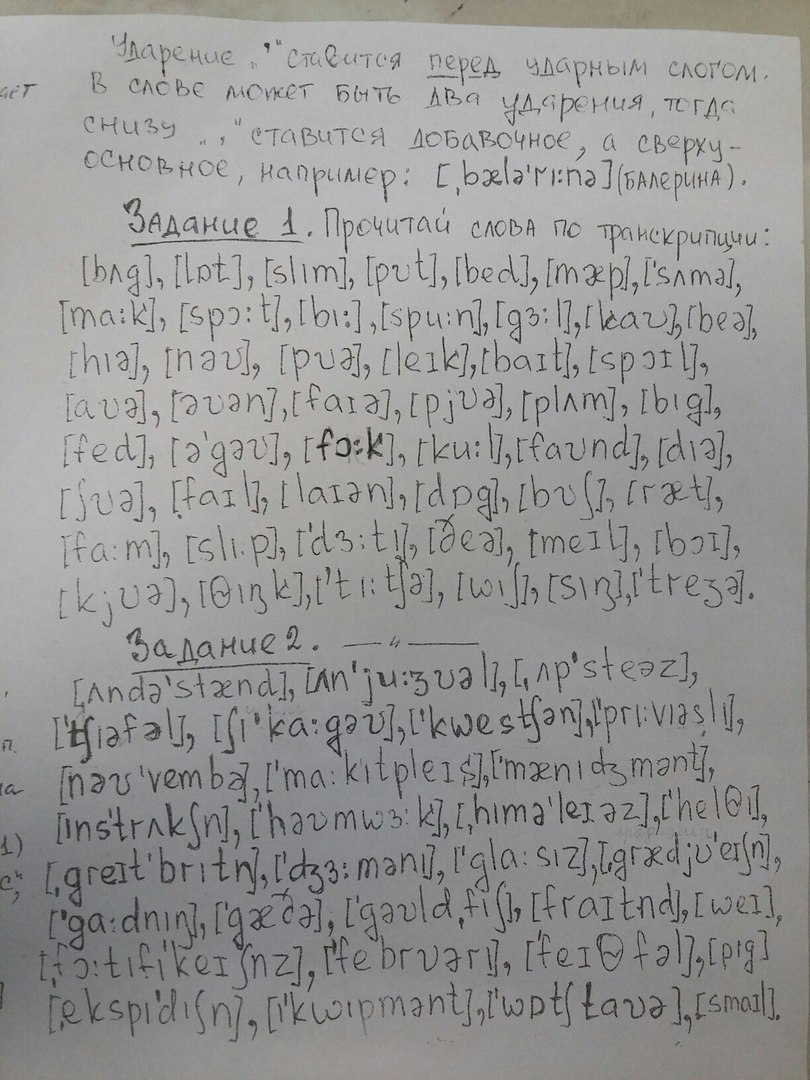 Ударение „ˈ“ ставится перед ударным слогом.
В слове может быть два ударения, тогда
снизу „ˌ“ ставится добавочное, а сверху-
основное, например: [ˌbælə'ri:nə] (БАЛЕРИНА).
Задание 1. Прочитай слова по транскрипции:
[bʌg], [lɒt], [slım], [pʊt], [bed], [mæp], ['sʌmə],
[ma:k], [spɔ:t], [bı:], [spu:n], [gɜ:l], [kaʊ], [beə],
[hıə], [nəʊ], [pʊə], [leık], [baıt], [spɔıl],
[aʊə], [əʊən], [faıə], [pjʊə], [plʌm], [bıg],
[fed], [ə'gəʊ], [fɔ:k], [ku:l], [faʊnd], [dıə],
[jʊə], [faıl], [laıən], [dɒg], [bʊʃ], [ræt],
[fa:m], [slı:p], ['dɜ:tı], [ðeə], [meıl], [bɔı],
[kjʊə], [θıŋk], ['tı:tʃə], [wıʃ], [sıŋ], ['treʒə].
Задание 2. —— " ——
[ʌndə'stænd], [ʌn'ju:ʒʊəl], [ˌʌp'steəz],
['tʃıəfəl], [ʃı'ka:gəʊ], ['kwestʃən], ['prı:vıəslı],
[nəʊ'vembə], ['ma:kıtpleıs], ['mænıdʒmənt],
[ıns'trʌkʃn], ['həʊmwɜ:k], [ˌhımə'leıəz], ['helθı],
[ˌgreıt'brıtn], ['dʒɜ:mənı], ['gla:sız], [ˌgrædjʊ'eıʃn],
['ga:dnıŋ], ['gæðə], ['gəʊldˌfıʃ], [fraıtnd], [weı],
[ˌfɔ:tıfı'keıʃnz], ['febrʊərı], ['feıθfəl], [pıg]
[ˌekspı'dıʃn], [ı'kwıpmənt], ['wɒtʃtaʊə], [smaıl].